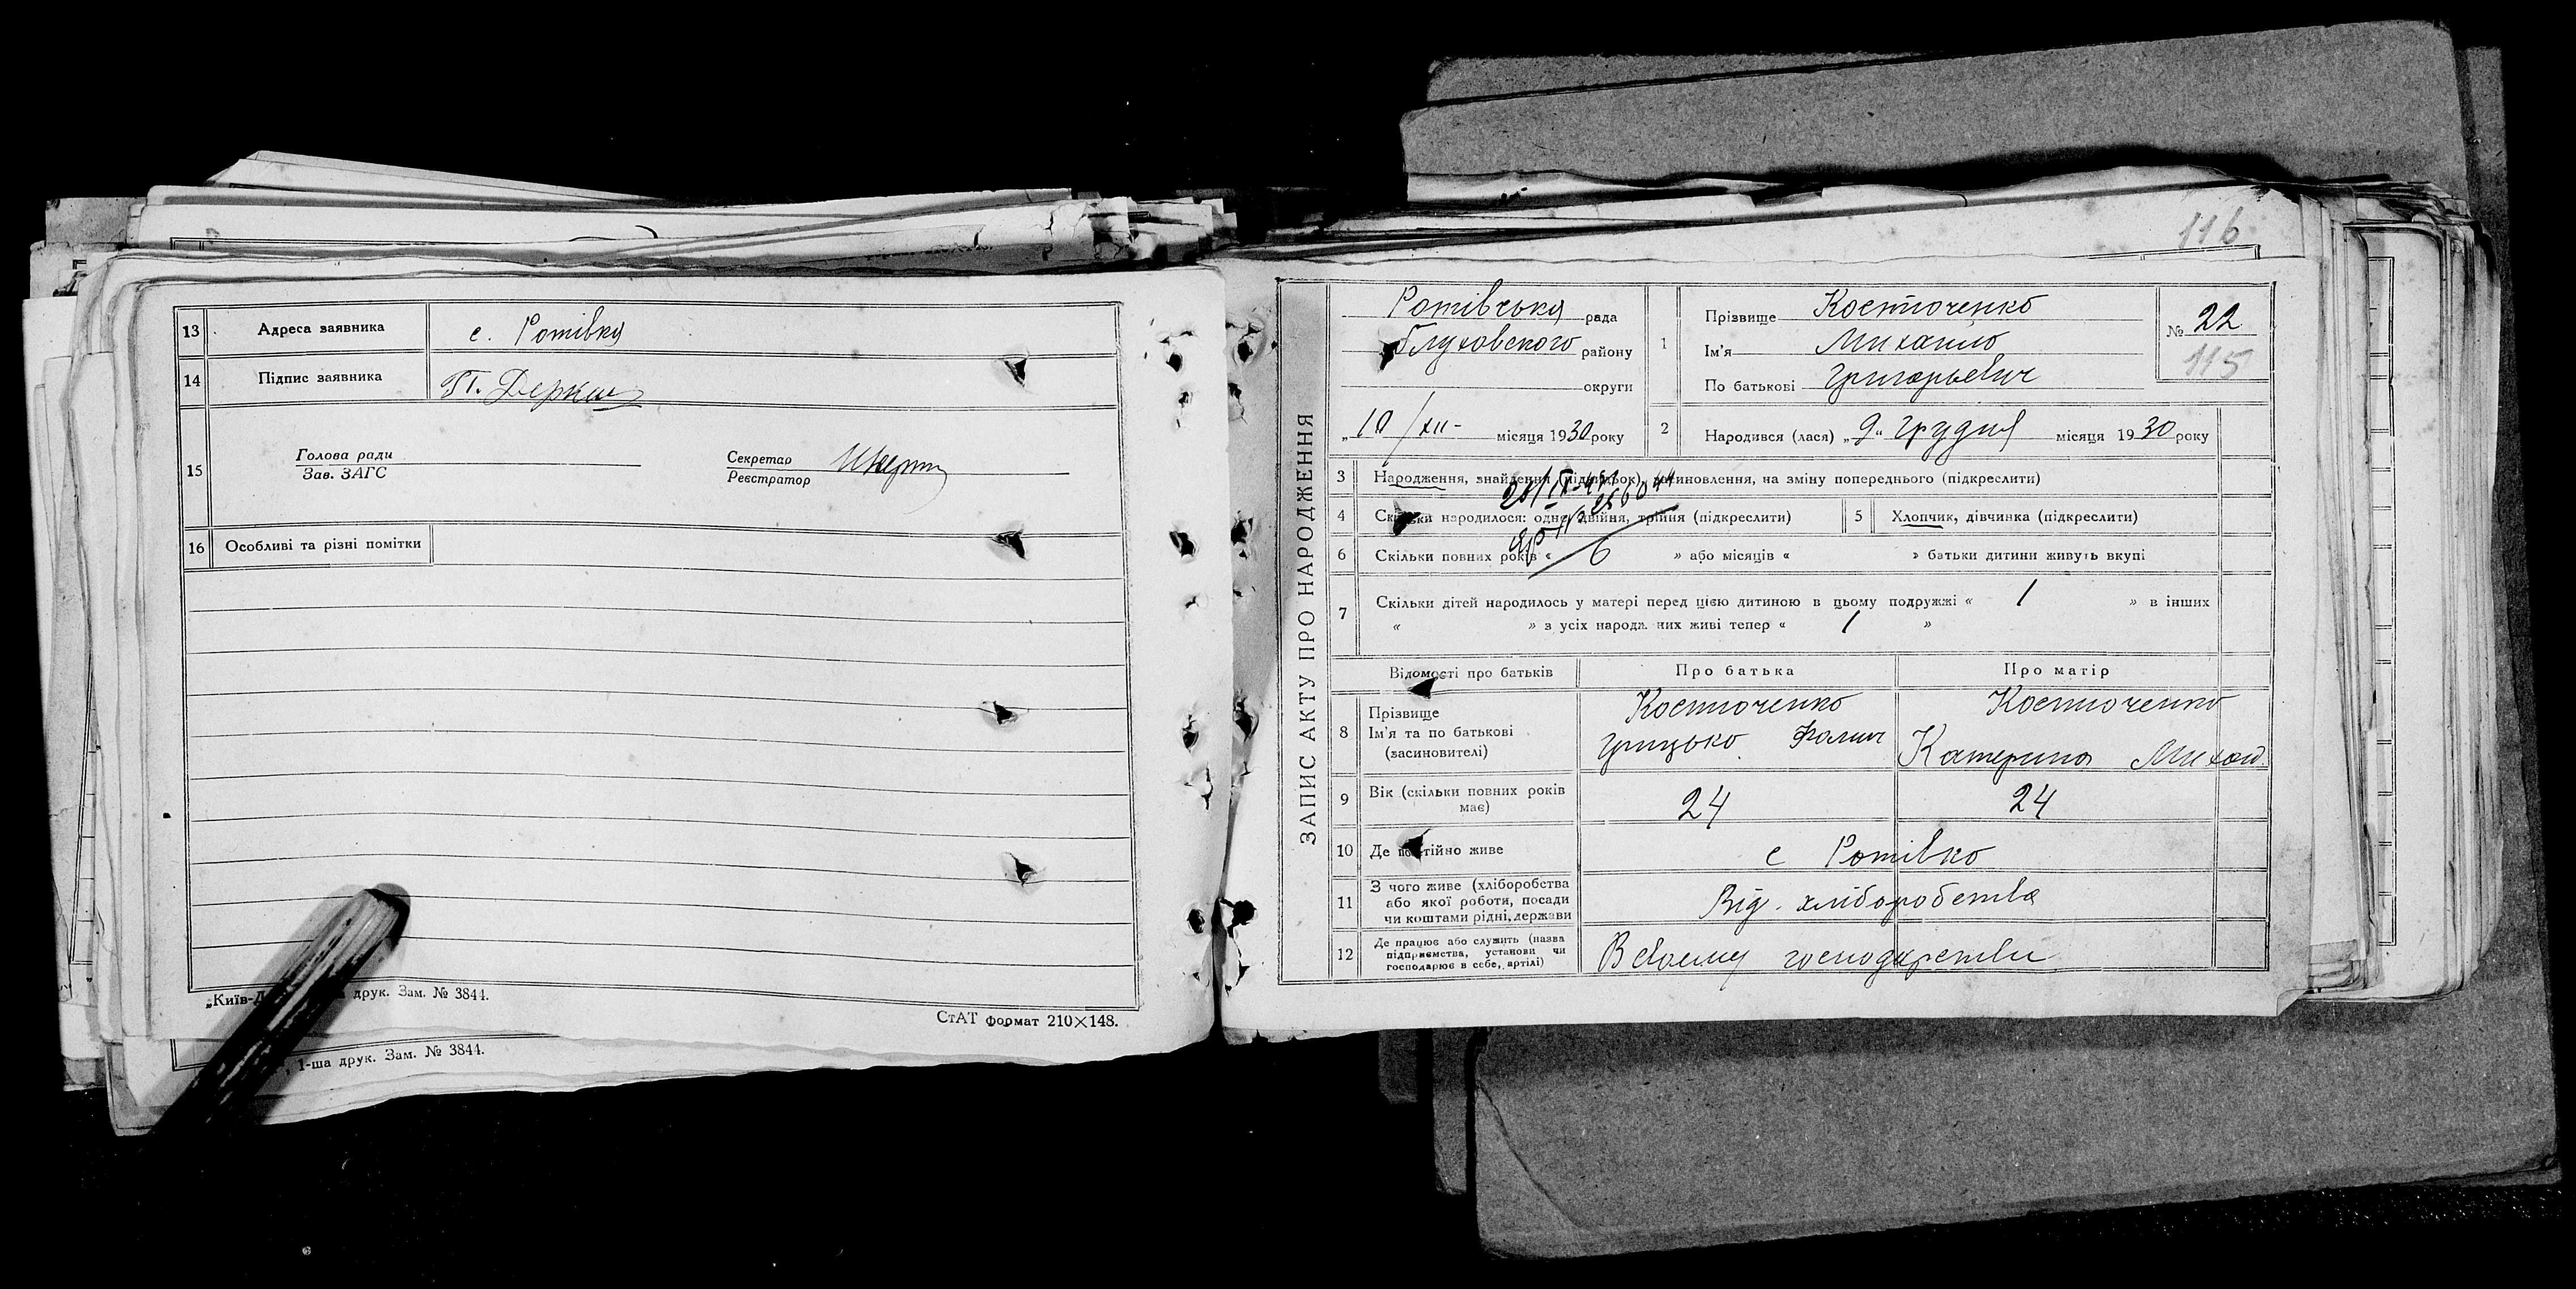 13 Адреса заявника с. Ротівка
14 Підпис заявника П. Деркач
15 Голова ради Секретар
Зав. ЗАГС Реєстратор
16 Особливі та різні помітки
друк. Зам. № 3844.
СтАТ формат 210×148.
1-ша друк. Зам. № 3844.
116
ЗАПИС АКТУ ПРО НАРОДЖЕННЯ
Ротівська рада
Глуховского району
округи
„10/XII- місяця 1930 року
1 Прізвище Костюченко
Ім'я Михайло
По батькові Григорьевич
№ 22
115
2 Народився (лася) „9“ грудня місяця 1930 року
3 Народження, знайдення (підкидьок), усиновлення, на зміну попереднього (підкреслити)
4 Скільки народилося: одне, двійня, трійня (підкреслити) 5 Хлопчик, дівчинка (підкреслити)
6 Скільки повних років « 6 » або місяців « » батьки дитини живуть вкупі
7 Скільки дітей народилось у матері перед цією дитиною в цьому подружжі « 1 » в інших
« » з усіх народж них живі тепер « 1 »
Відомості про батьків Про батька Про матір
8 Прізвище Костюченко Костюченко
Ім'я та по батькові Грицько Катерина Михай
(засиновителі)
9 Вік (скільки повних років має) 24 24
10 Де постійно живе с Ротівко
11 З чого живе (хліборобства
або якої роботи, посади Від. хліборобства
чи коштами рідні, держави
12 Де працює або служить (назва
підприємства, установи чи В своему господарстви
господарює в себе, артілі)